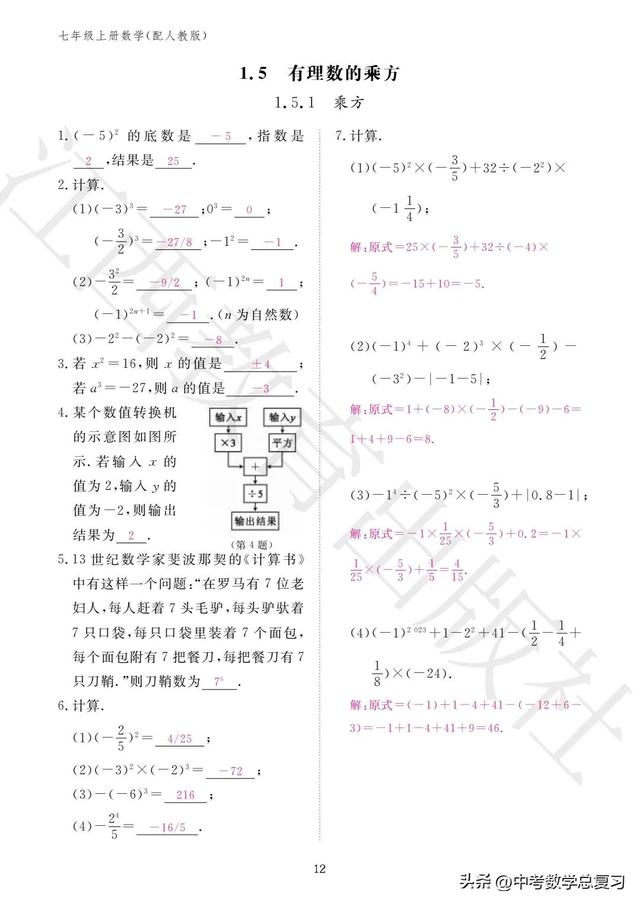 七年级上册数学(配人教版)
1.5 有理数的乘方
1.5.1 乘方
1.(-5)² 的底数是 -5 ,指数是
2 ,结果是 25 .
2.计算.
(1)(-3)³= -27 ;0³= 0 ;
(-3/2)³= -27/8 ;-1²= -1 .
(2)-3²/2= -9/2 ;(-1)²ⁿ= 1 ;
(-1)²ⁿ⁺¹= -1 .(n 为自然数)
(3)-2²-(-2)²= -8 .
3.若 x²=16,则 x 的值是 ±4 ;
若 a³=-27,则 a 的值是 -3 .
4.某个数值转换机
的示意图如图所
示.若输入 x 的
值为 2,输入 y 的
值为-2,则输出
结果为 2 .
输入x 输入y
×3 平方
+
÷5
输出结果
(第 4 题)
5.13 世纪数学家斐波那契的《计算书》
中有这样一个问题:“在罗马有 7 位老
妇人,每人赶着 7 头毛驴,每头驴驮着
7 只口袋,每只口袋里装着 7 个面包,
每个面包附有 7 把餐刀,每把餐刀有 7
只刀鞘.”则刀鞘数为 7⁶ .
6.计算.
(1)(-2/5)²= 4/25 ;
(2)(-3)²×(-2)³= -72 ;
(3)-(-6)³= 216 ;
(4)-2⁴/5= -16/5 .
7.计算.
(1)(-5)²×(-3/5)+32÷(-2²)×
(-1 1/4);
解:原式=25×(-3/5)+32÷(-4)×
(-5/4)=-15+10=-5.
(2)(-1)⁴+(-2)³×(-1/2)-
(-3²)-|-1-5|;
解:原式=1+(-8)×(-1/2)-(-9)-6=
1+4+9-6=8.
(3)-1⁴÷(-5)²×(-5/3)+|0.8-1|;
解:原式=-1×1/25×(-5/3)+0.2=-1×
1/25×(-5/3)+1/5=4/15.
(4)(-1)²⁰²³+1-2²+41-(1/2-1/4+
1/8)×(-24).
解:原式=(-1)+1-4+41-(-12+6-
3)=-1+1-4+41+9=46.
12
江西教育出版社
头条 @中考数学总复习